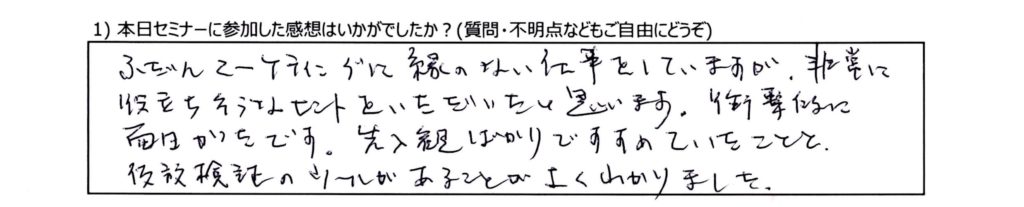 1) 本日セミナーに参加した感想はいかがでしたか？(質問・不明点などもご自由にどうぞ)
ふだんマーケティングに縁のない仕事をしていますが、非常に
役立ちそうなヒントをいただいたと思います。衝撃的に
面白かったです。先入観ばかりですすめていたことと、
仮説検証のツールがあることがよくわかりました。